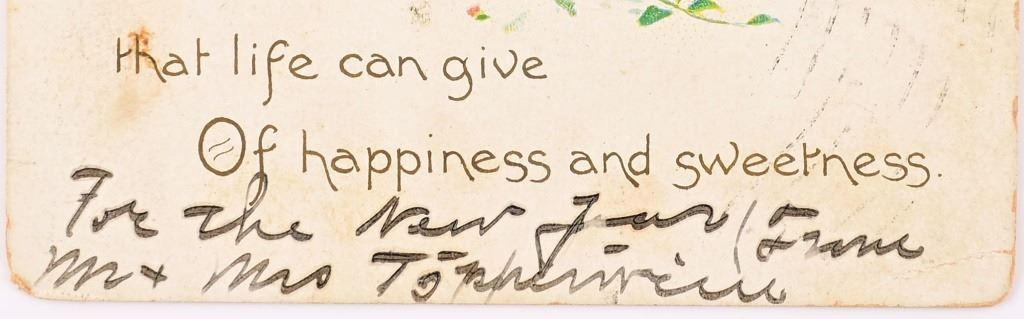 that life can give
Of happiness and sweetness.
For the New Year (From
Mr + Mrs